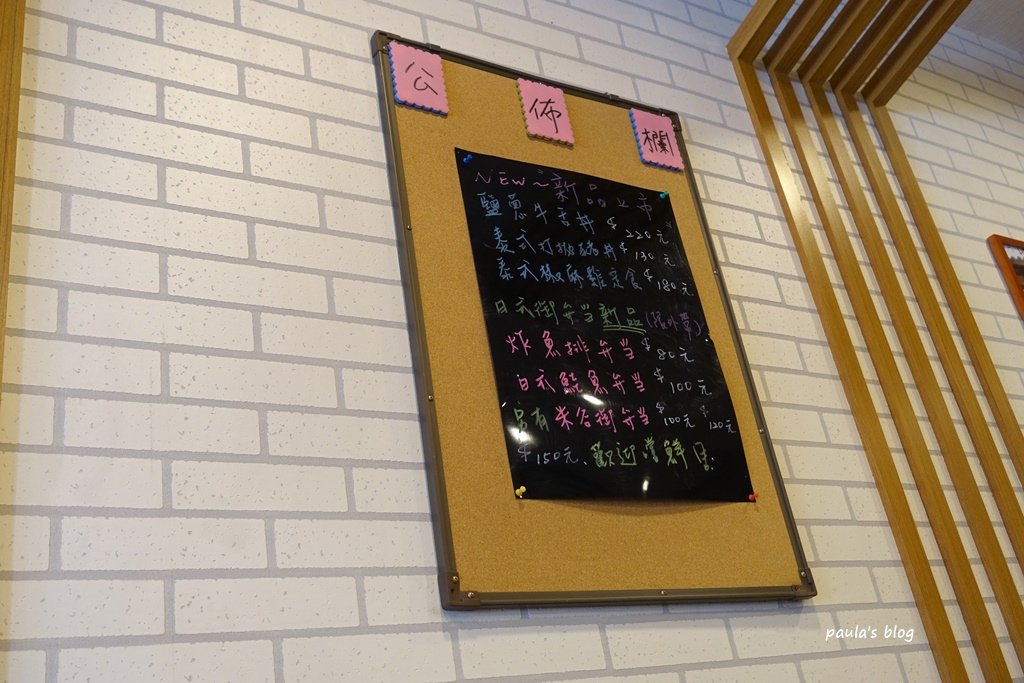 公佈欄
NEW~新品上市
鹽蔥牛舌丼 $220元
泰式打拋豬丼 $130元
泰式椒麻雞定食 $180元
日式御弁当新品(限外帶)
炸魚排弁当 $80元
日式鯖魚弁当 $100元
另有米谷御弁当 $100元 $120元
$150元、歡迎嚐鮮
paula's blog